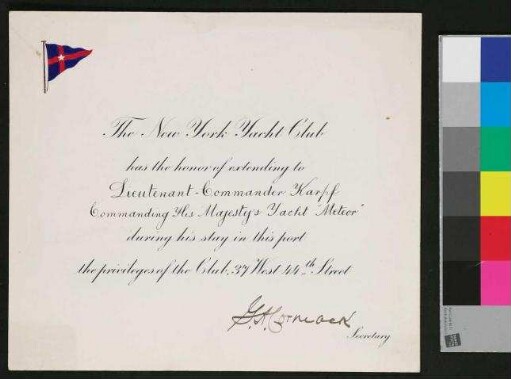 The New York Yacht Club
has the honor of extending to
Lieutenant-Commander Karpf
Commanding His Majesty's Yacht "Meteor"
during his stay in this port
the privileges of the Club, 37 West 44th Street
G.A. Cormack
Secretary